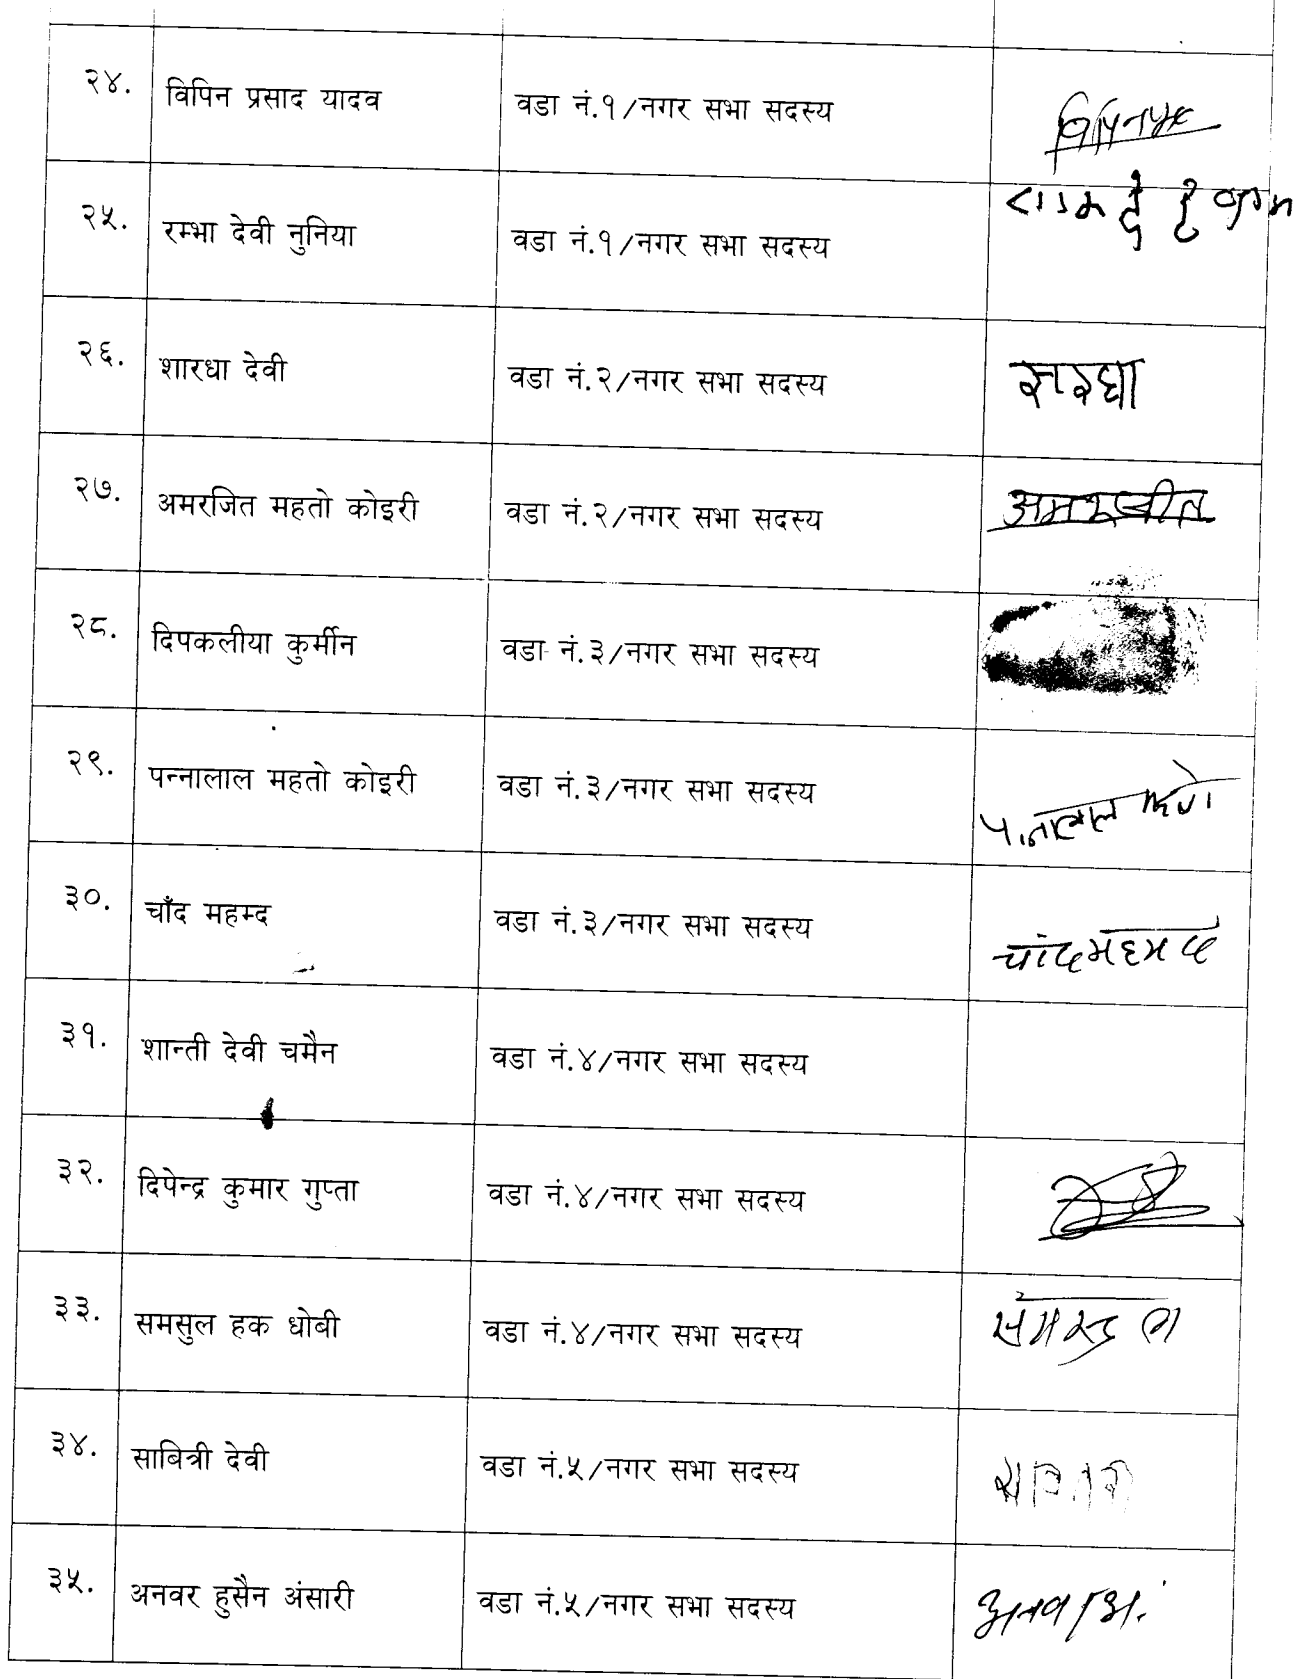 २४. विपिन प्रसाद यादव वडा नं.१/नगर सभा सदस्य
२५. रम्भा देवी नुनिया वडा नं.१/नगर सभा सदस्य
२६. शारधा देवी वडा नं.२/नगर सभा सदस्य सारधा
२७. अमरजित महतो कोइरी वडा नं.२/नगर सभा सदस्य अमरजीत
२८. दिपकलीया कुर्मीन वडा नं.३/नगर सभा सदस्य
२९. पन्नालाल महतो कोइरी वडा नं.३/नगर सभा सदस्य
३०. चाँद महम्द वडा नं.३/नगर सभा सदस्य चांद महमद
३१. शान्ती देवी चमैन वडा नं.४/नगर सभा सदस्य
३२. दिपेन्द्र कुमार गुप्ता वडा नं.४/नगर सभा सदस्य
३३. समसुल हक धोबी वडा नं.४/नगर सभा सदस्य
३४. साबित्री देवी वडा नं.५/नगर सभा सदस्य
३५. अनवर हुसैन अंसारी वडा नं.५/नगर सभा सदस्य